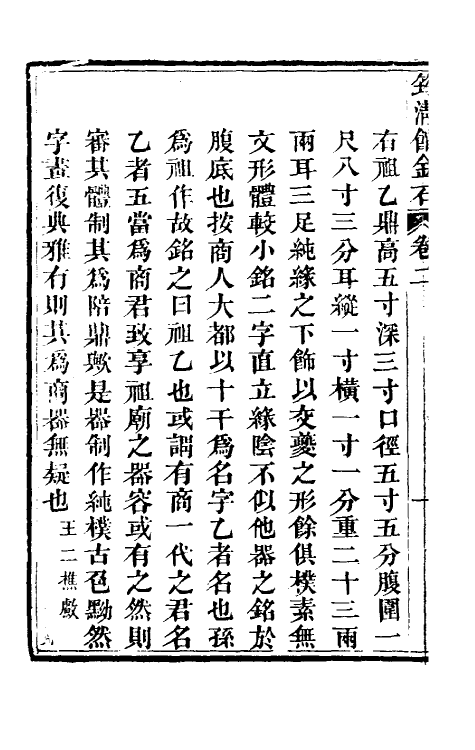 筠清館金石 卷二
右祖乙鼎高五寸深三寸口徑五寸五分腹圍一
尺八寸三分耳縱一寸橫一寸一分重二十三兩
兩耳三足純緣之下飾以交夔之形餘俱樸素無
文形體較小銘二字直立緣陰不似他器之銘於
腹底也按商人大都以十干為名字乙者名也孫
為祖作故銘之曰祖乙也或謂有商一代之君名
乙者五當為商君致享祖廟之器容或有之然則
審其體制其為陪鼎歟是器制作純樸古色黝然
字畫復典雅有則其為商器無疑也 王二樵獻